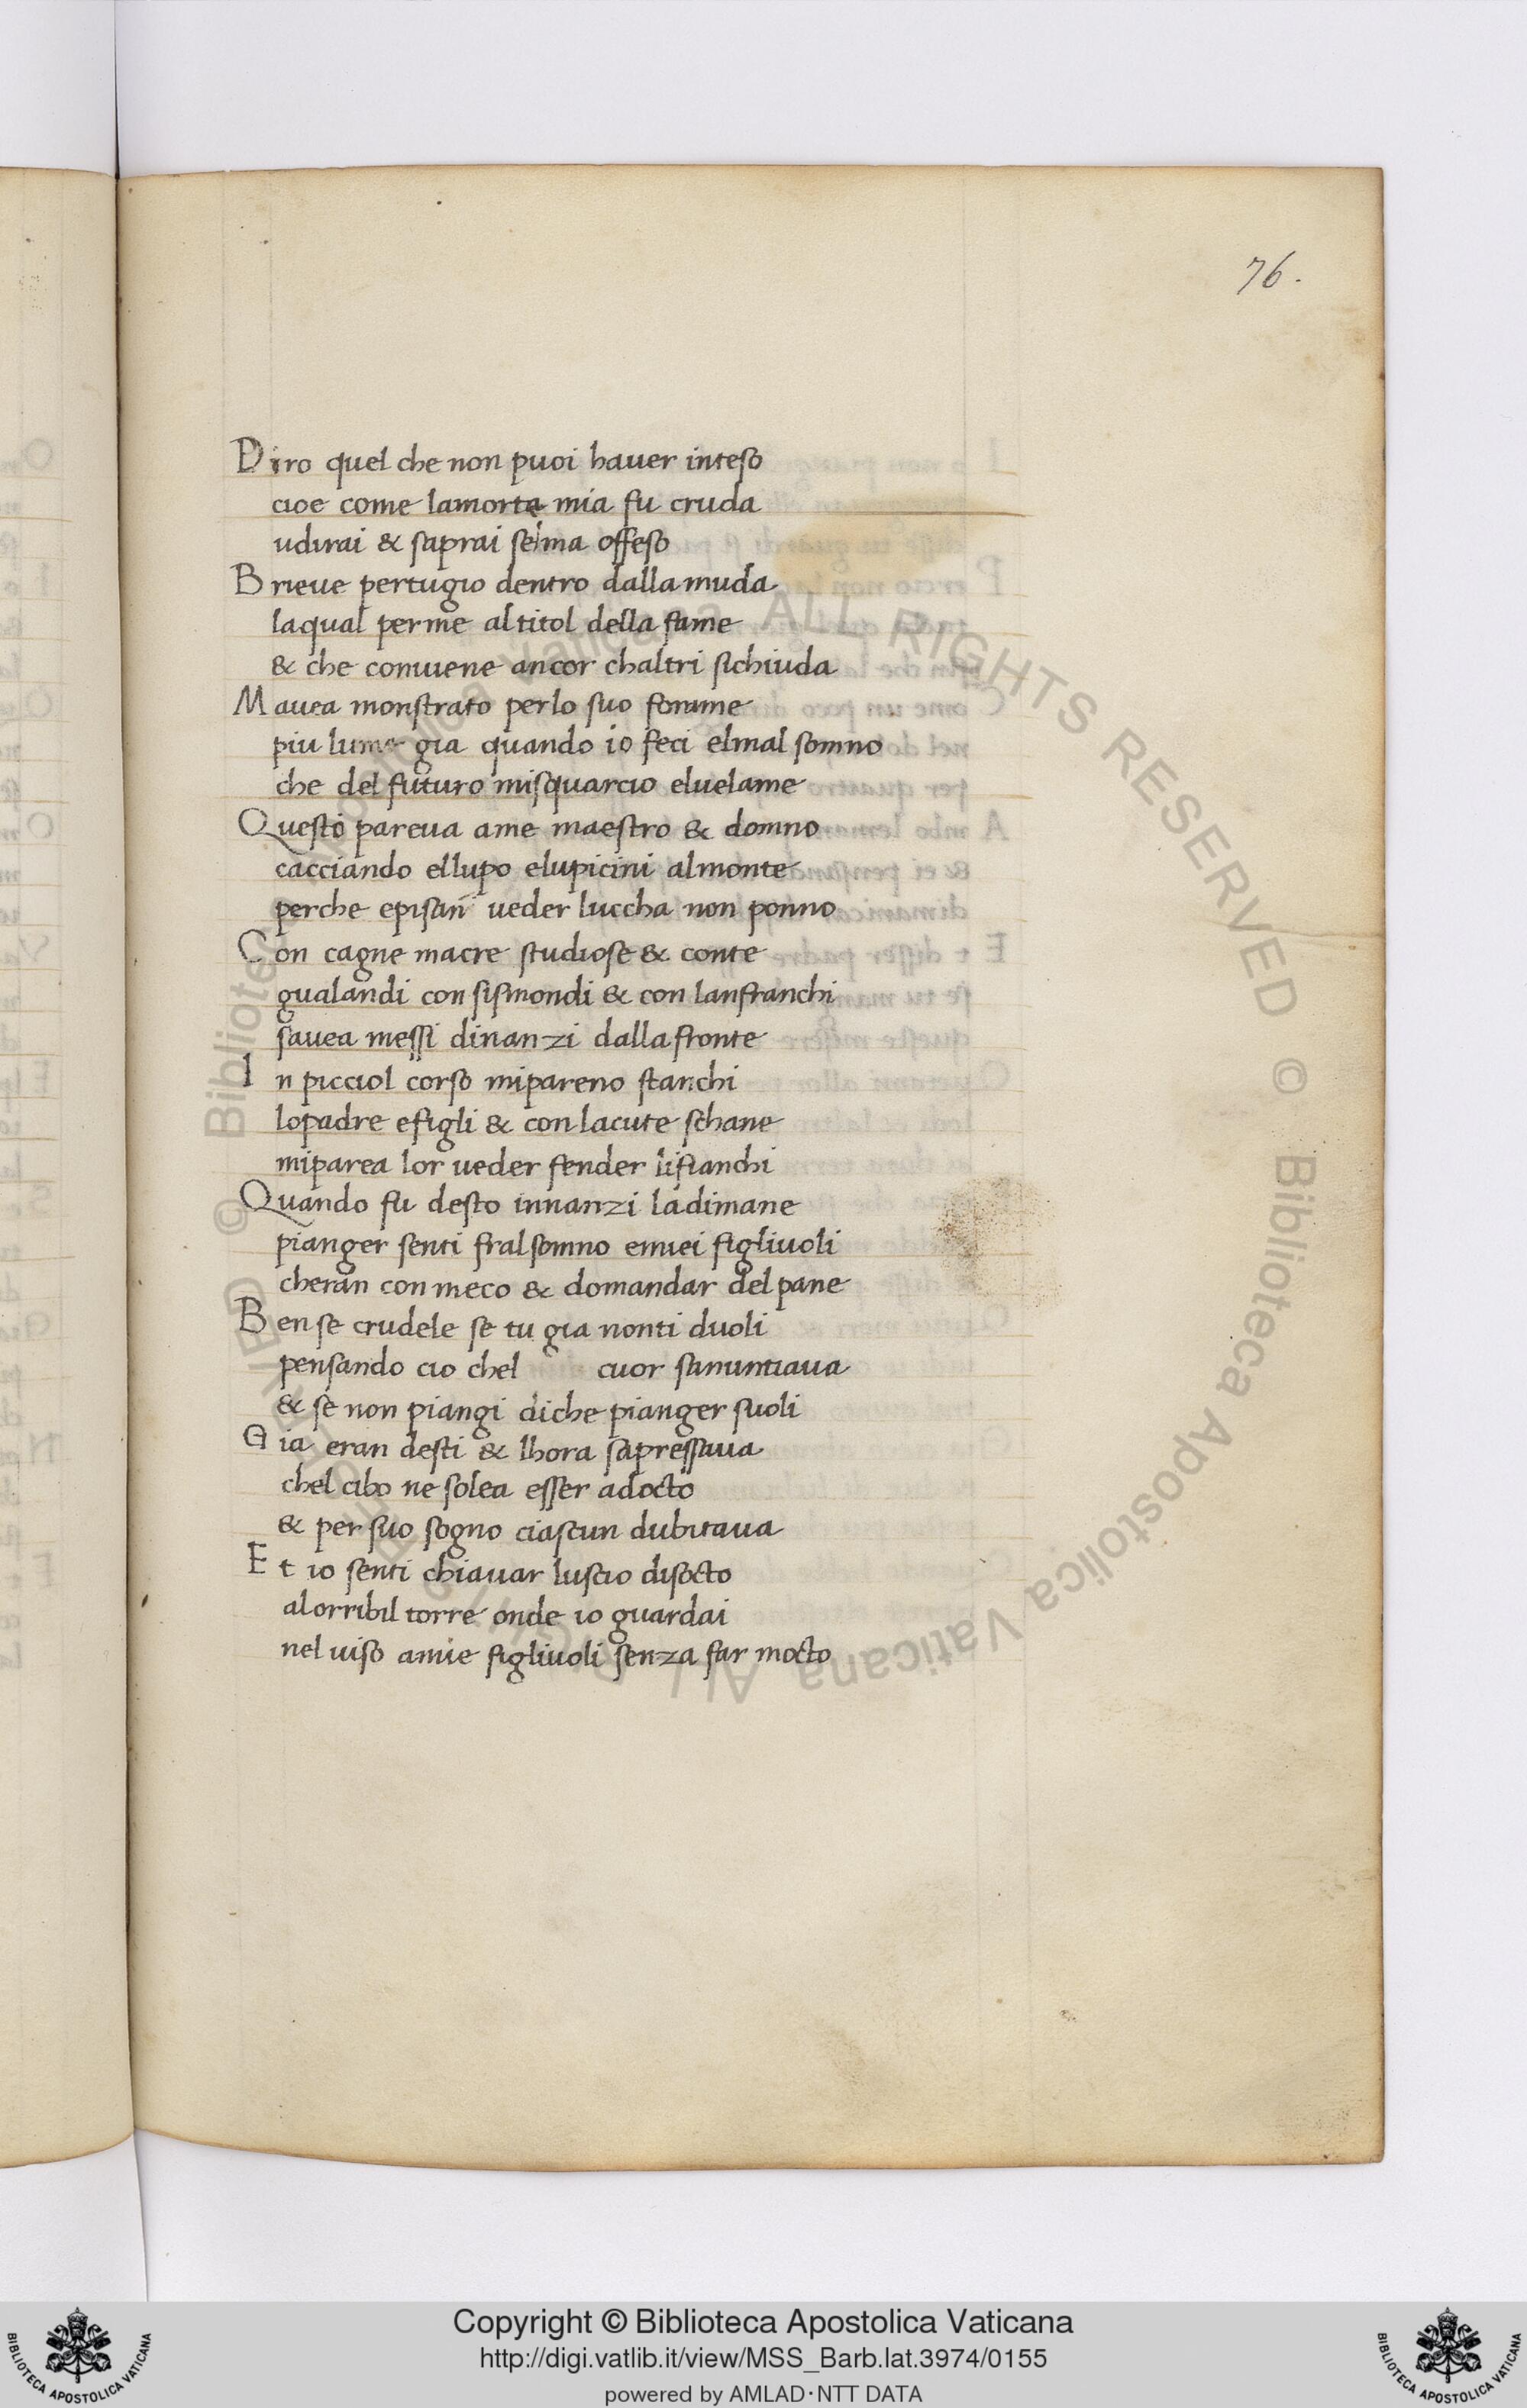 76.
Diro quel che non puoi hauer inteso
cioe come lamorte mia fu cruda
udirai & saprai sema offeso
Brieue pertugio dentro dalla muda
laqual perme al titol della fame
& che conuiene ancor chaltri sichiuda
Mauea monstrato perlo suo forame
piu lume gia quando io feci elmal somno
che del futuro misquarcio eluelame
Questo pareua ame maestro & domno
cacciando ellupo elupicini almonte
perche episan ueder luccha non ponno
Con cagne macre studiose & conte
gualandi con sismondi & con lanfranchi
sauea messi dinanzi dalla fronte
In picciol corso mipareno stanchi
lopadre efigli & con lacute schane
miparea lor ueder fender lifianchi
Quando fu desto innanzi ladimane
pianger senti fralsomno emiei figliuoli
cheran con meco & domandar del pane
Ben se crudele se tu gia nonti duoli
pensando cio chel cuor sanuntiaua
& se non piangi diche pianger suoli
Gia eran desti & lhora sapressaua
chel cibo ne solea esser adocto
& per suo sogno ciascun dubitaua
Et io senti chiauar luscio disocto
alorribil torre onde io guardai
nel uiso amie figliuoli senza far mocto
© Biblioteca Apostolica Vaticana ALL RIGHTS RESERVED © Biblioteca Apostolica Vaticana ALL RIGHTS RESERVED
Copyright © Biblioteca Apostolica Vaticana
http://digi.vatlib.it/view/MSS_Barb.lat.3974/0155
powered by AMLAD·NTT DATA
BIBLIOTECA APOSTOLICA VATICANA
BIBLIOTECA APOSTOLICA VATICANA